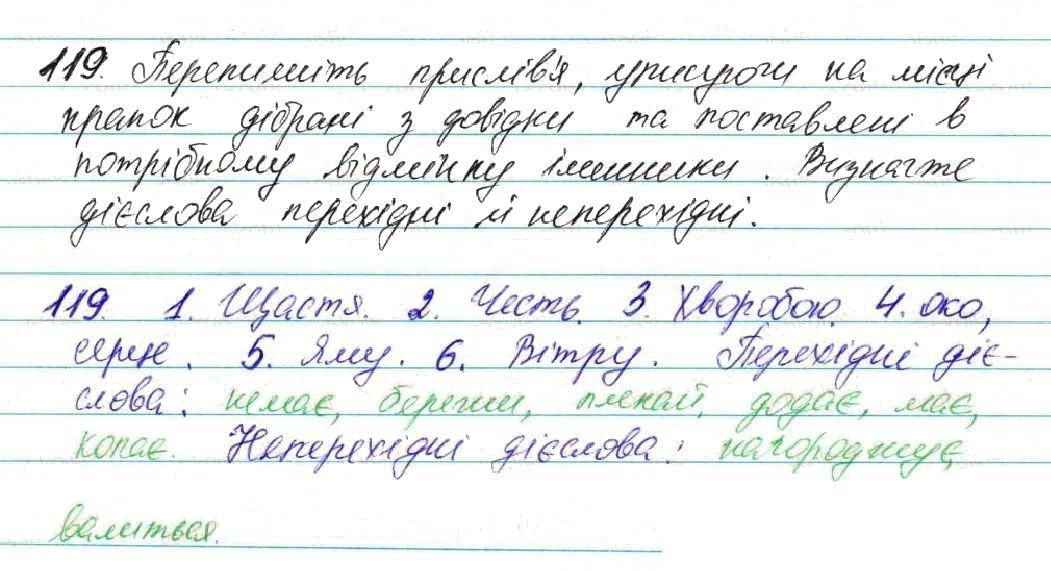 119. Перепишіть прислів'я, уписуючи на місці
крапок дібрані з довідки та поставлені в
потрібному відмінку іменники. Визначте
дієслова перехідні й неперехідні.
119. 1. Щастя. 2. Честь. 3. Хворобою. 4. Око,
серце. 5. Яму. 6. Вітру. Перехідні діє-
слова: немає, бережи, плекай, додає, має,
копає. Неперехідні дієслова: нагороджує,
валиться.